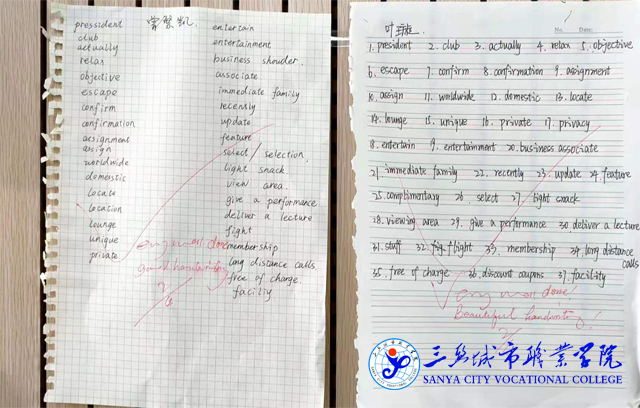 pressident
club
actually
relax
objective
escape
confirm
confirmation
assignment
assign
worldwide
domestic
locate
location
lounge
unique
private
entertain
entertainment
business shouder.
associate
immediate family
recently
update
feature
select / selection.
light snack
view area.
give a performance
deliver a lecture
fight
membership
long distance calls
free of charge.
facility
well done
good handwriting
No. Date:
1. president 2. club 3. actually 4. relax 5. objective
6. escape 7. confirm 8. confirmation 9. assignment
10. assign 11. worldwide 12. domestic 13. locate
14. lounge 15. unique 16. private 17. privacy
18. entertain 19. entertainment 20. business associate
21. immediate family 22. recently 23. update 24. feature
25. complimentary 26. select 27. light snack
28. viewing area 29. give a performance 30. deliver a lecture
31. staff 32. fig. flight 33. membership 34. long distance calls
35. free of charge 36. discount coupons 37. facility
Very well done!
Beautiful handwriting!
三亚城市职业学院
SANYA CITY VOCATIONAL COLLEGE